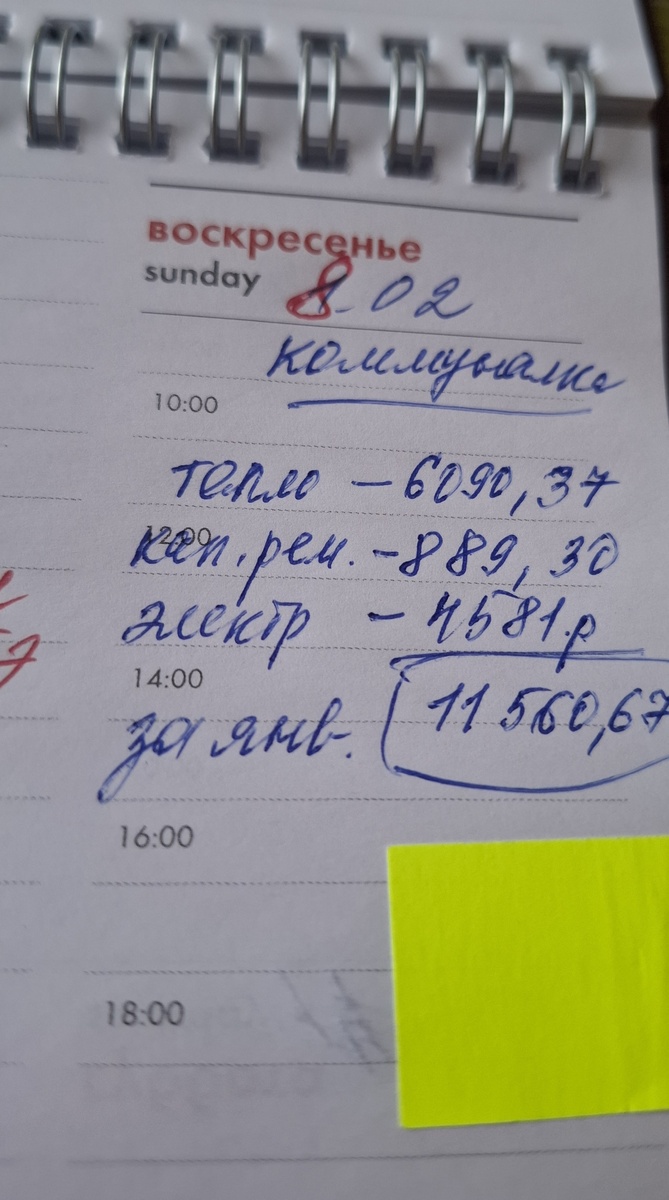 воскресенье
sunday 8.02
коммуналка
10:00
тепло – 6090,37
12:00
кап.рем. – 889,30
электр – 4581р
14:00
11 560,67
за янв.
16:00
18:00